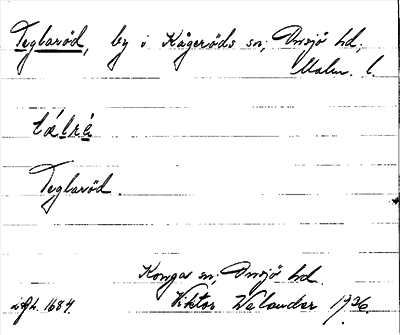 Teglaröd, by i Kågeröds sn; Onsjö hd;
Malm. l.
Teglaröd.
Konga sn; Onsjö hd.
Viktor Welander 1936.